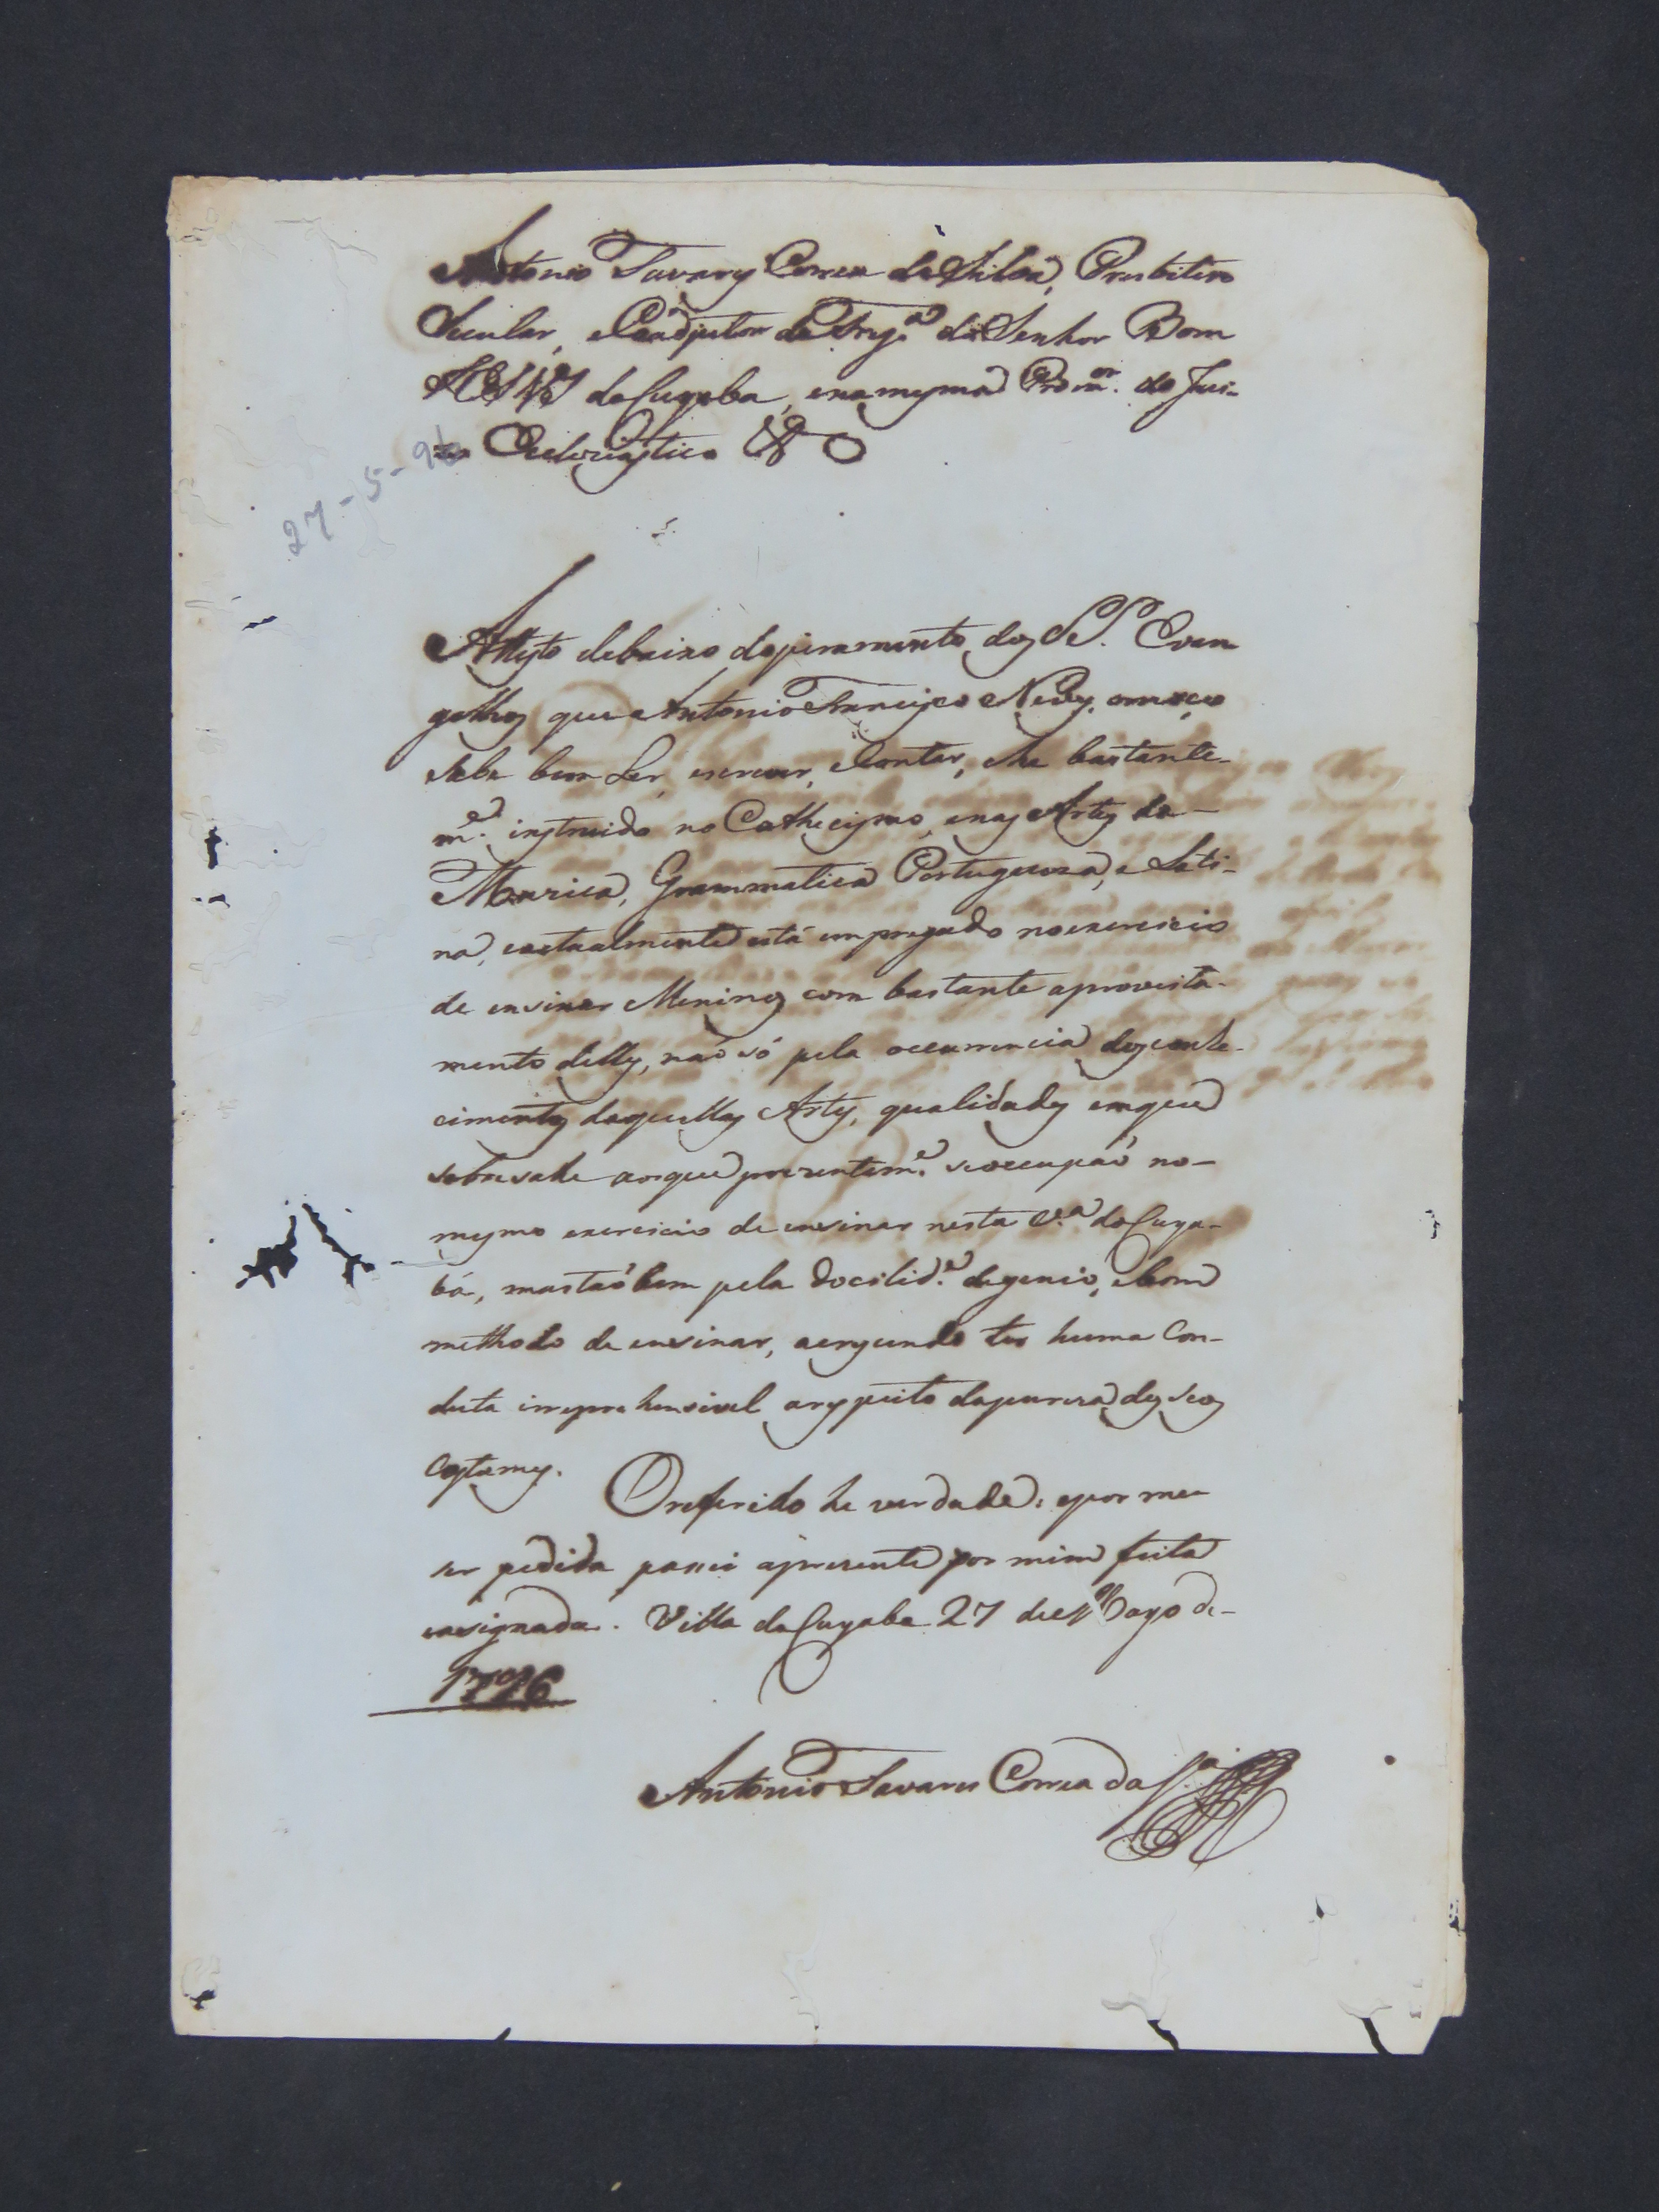 Antonio Tavares Correa da Silva, Presbitero
Secular, e Coadjutor da Freg.ª do Senhor Bom
JESUS do Cuyaba, e na mesma Prom.or do Jui-
zo Ecclesiastico &
27-5-96
Attesto debaixo do juramento dos S.S. Evan
gelhos que Antonio Francisco Neves, o moço
sabe bem Ler, escrever, e Contar, e he bastante-
m.e instruido no Cathecismo, e nas Artes da-
Muzica, Grammatica Portugueza, e Lati-
na, e actualmente está empregado no exercicio
de ensinar Meninos com bastante aproveita-
mento delles, naõ só pela occurrencia dos conhe-
cimentos daquellas Artes, qualidades em que
sobresahe aos que prezentem.e se occupaõ no-
mesmo exercicio de ensinar nesta V.ª do Cuya-
bá, mas taõbem pela docilid.e de genio, e bom
methodo de ensinar, acrescendo ter huma Con-
duta irreprehensivel a respeito da pureza de seos
Costumes.
O referido he verdade: e por me
ser pedida passei a prezente por mim feita
e assignada. Villa do Cuyaba 27 de Mayo de-
1796
Antonio Tavares Correa da S.ª